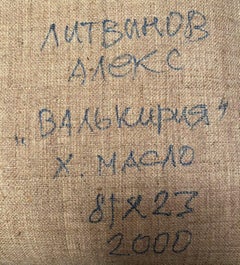 ЛИТВИНОВ
АЛЕКС
„ВАЛЬКИРИЯ"
Х. МАСЛО
81 X 23
2000